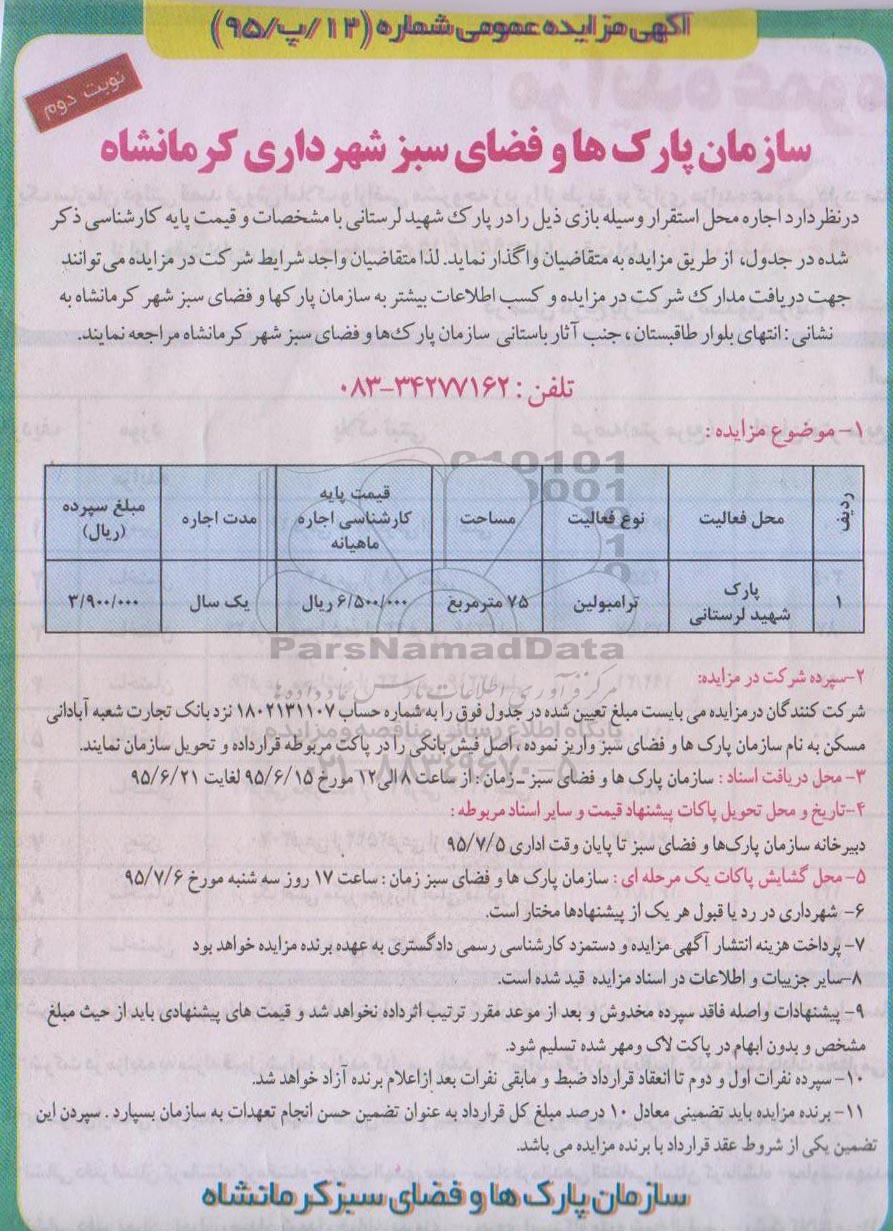 آگهی مزایده عمومی شماره (۱۲/پ/۹۵)
نوبت دوم
سازمان پارک ها و فضای سبز شهرداری کرمانشاه
درنظر دارد اجاره محل استقرار وسیله بازی ذیل را در پارک شهید لرستانی با مشخصات و قیمت پایه کارشناسی ذکر
شده در جدول، از طریق مزایده به متقاضیان واگذار نماید. لذا متقاضیان واجد شرایط شرکت در مزایده می توانند
جهت دریافت مدارک شرکت در مزایده و کسب اطلاعات بیشتر به سازمان پارکها و فضای سبز شهر کرمانشاه به
نشانی : انتهای بلوار طاقبستان ، جنب آثار باستانی سازمان پارک‌ها و فضای سبز شهر کرمانشاه مراجعه نمایند.
تلفن : ۳۴۲۷۷۱۶۲-۰۸۳
۱- موضوع مزایده :
ردیف محل فعالیت نوع فعالیت مساحت قیمت پایه کارشناسی اجاره ماهیانه مدت اجاره مبلغ سپرده (ریال)
۱ پارک شهید لرستانی ترامبولین ۷۵ مترمربع ۶/۵۰۰/۰۰۰ ریال یک سال ۳/۹۰۰/۰۰۰
ParsNamadData
مرکز فرآوری اطلاعات پارس نماد داده ها
پایگاه اطلاع رسانی مناقصه و مزایده
۰۲۱-۸۸۳۴۹۶۷۰-۵
۲-سپرده شرکت در مزایده:
شرکت کنندگان درمزایده می بایست مبلغ تعیین شده در جدول فوق را به شماره حساب ۱۸۰۲۱۳۱۱۰۷ نزد بانک تجارت شعبه آبادانی
مسکن به نام سازمان پارک ها و فضای سبز واریز نموده ، اصل فیش بانکی را در پاکت مربوطه قرارداده و تحویل سازمان نمایند.
۳- محل دریافت اسناد : سازمان پارک ها و فضای سبز ـ زمان : از ساعت ۸ الی۱۲ مورخ ۹۵/۶/۱۵ لغایت ۹۵/۶/۲۱
۴-تاریخ و محل تحویل پاکات پیشنهاد قیمت و سایر اسناد مربوطه :
دبیرخانه سازمان پارک‌ها و فضای سبز تا پایان وقت اداری ۹۵/۷/۵
۵- محل گشایش پاکات یک مرحله ای : سازمان پارک ها و فضای سبز زمان : ساعت ۱۷ روز سه شنبه مورخ ۹۵/۷/۶
۶- شهرداری در رد یا قبول هر یک از پیشنهادها مختار است.
۷- پرداخت هزینه انتشار آگهی مزایده و دستمزد کارشناسی رسمی دادگستری به عهده برنده مزایده خواهد بود
۸-سایر جزییات و اطلاعات در اسناد مزایده قید شده است.
۹- پیشنهادات واصله فاقد سپرده مخدوش و بعد از موعد مقرر ترتیب اثرداده نخواهد شد و قیمت های پیشنهادی باید از حیث مبلغ
مشخص و بدون ابهام در پاکت لاک ومهر شده تسلیم شود.
۱۰- سپرده نفرات اول و دوم تا انعقاد قرارداد ضبط و مابقی نفرات بعد ازاعلام برنده آزاد خواهد شد.
۱۱- برنده مزایده باید تضمینی معادل ۱۰ درصد مبلغ کل قرارداد به عنوان تضمین حسن انجام تعهدات به سازمان بسپارد . سپردن این
تضمین یکی از شروط عقد قرارداد با برنده مزایده می باشد.
سازمان پارک ها و فضای سبز کرمانشاه